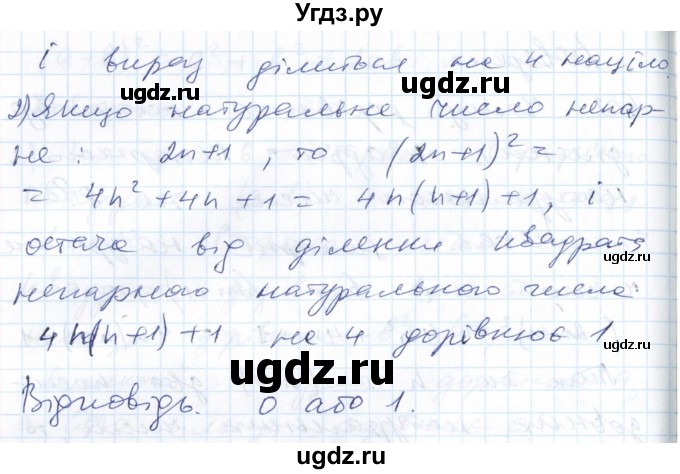 Угдз.ру
і вираз ділиться на 4 націло.
ugdz.ru
2) Якщо натуральне число непар-
ugdz.ru ugdz.ru
не: 2n+1, то (2n+1)² =
= 4n² + 4n + 1 = 4n(n+1)+1, і
остача від ділення квадрата
ugdz.ru
непарного натурального числа:
4n(n+1)+1 на 4 дорівнює 1
ugdz.ru
ugdz.ru
Відповідь. 0 або 1.
ugdz.ru